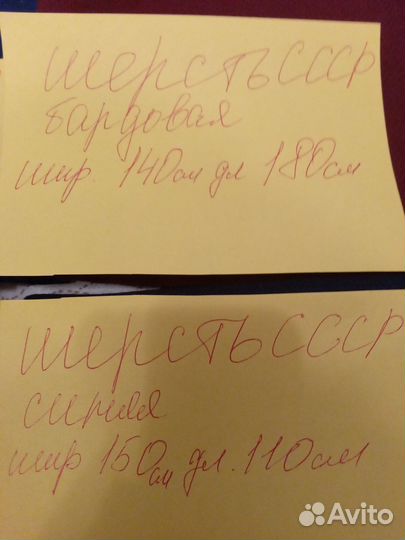 шерсть СССР
бардовая
шир. 140см дл 180см
шерсть СССР
синяя
шир 150см дл. 110см
Avito